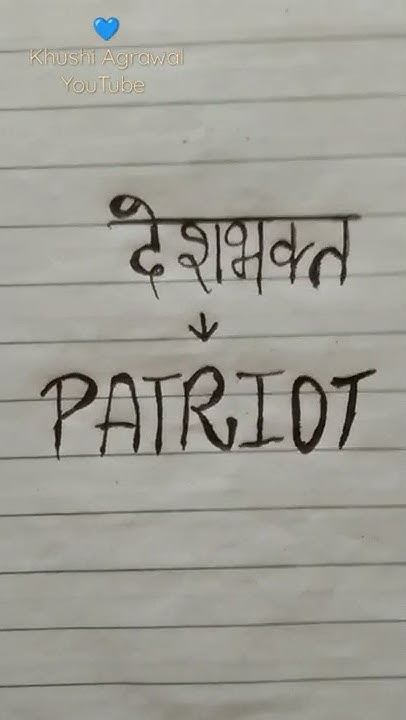 💙
Khushi Agrawal
YouTube
देशभक्त
↓
PATRIOT